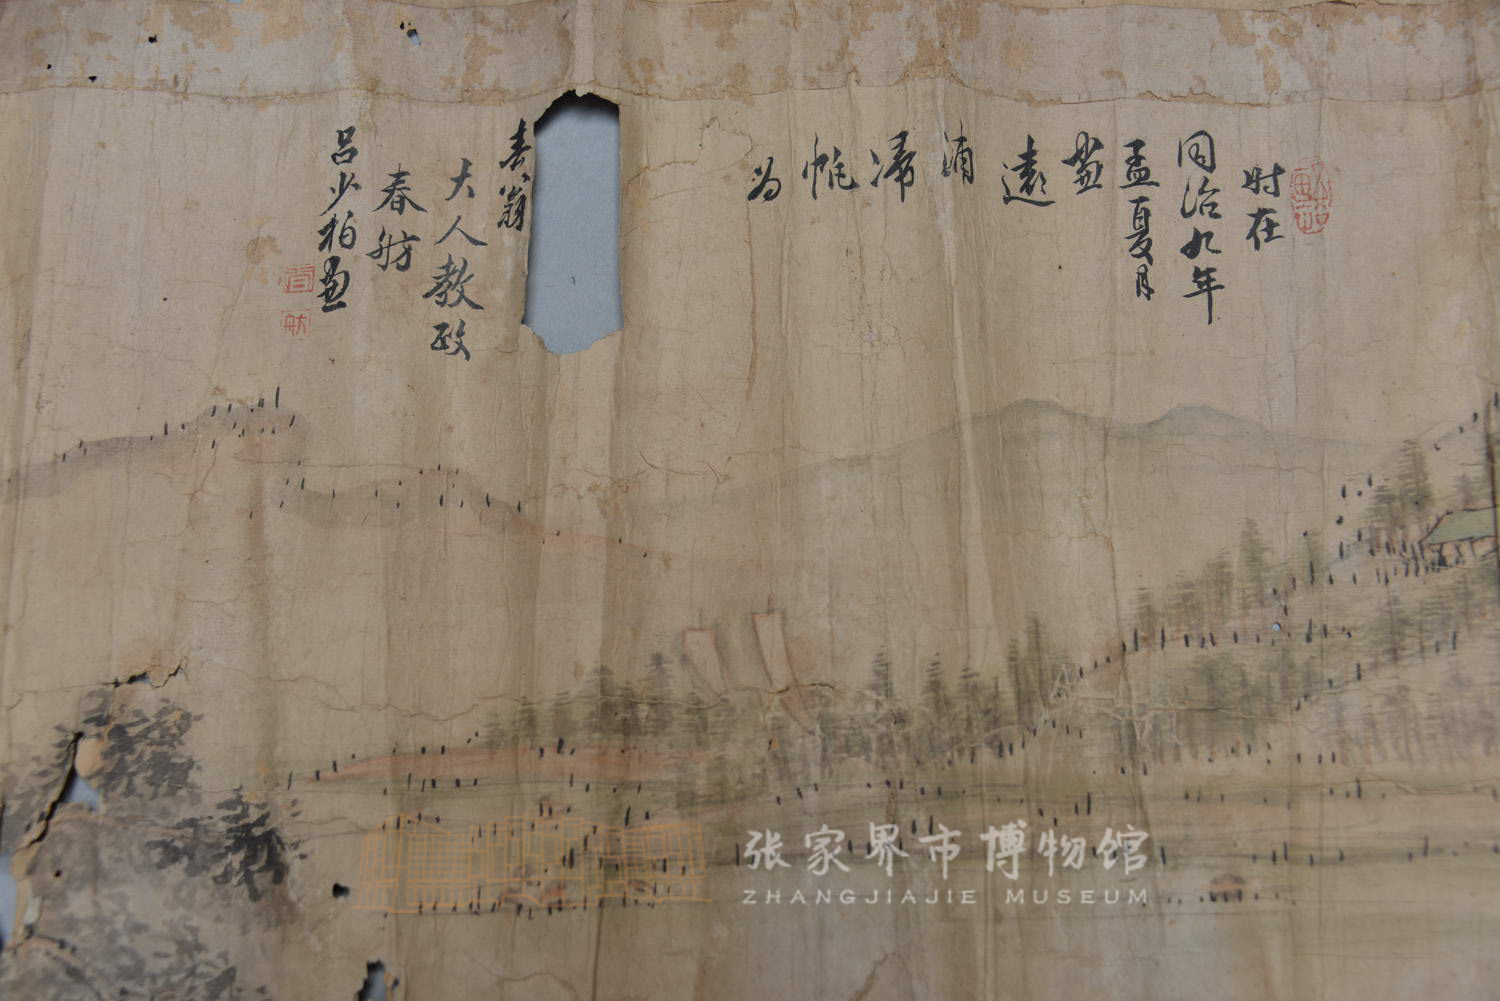 时在
同治九年
孟夏月
画
远
浦
归
帆
为
春翁
大人教政
春舫
吕少柏画
张家界市博物馆
ZHANGJIAJIE MUSEUM